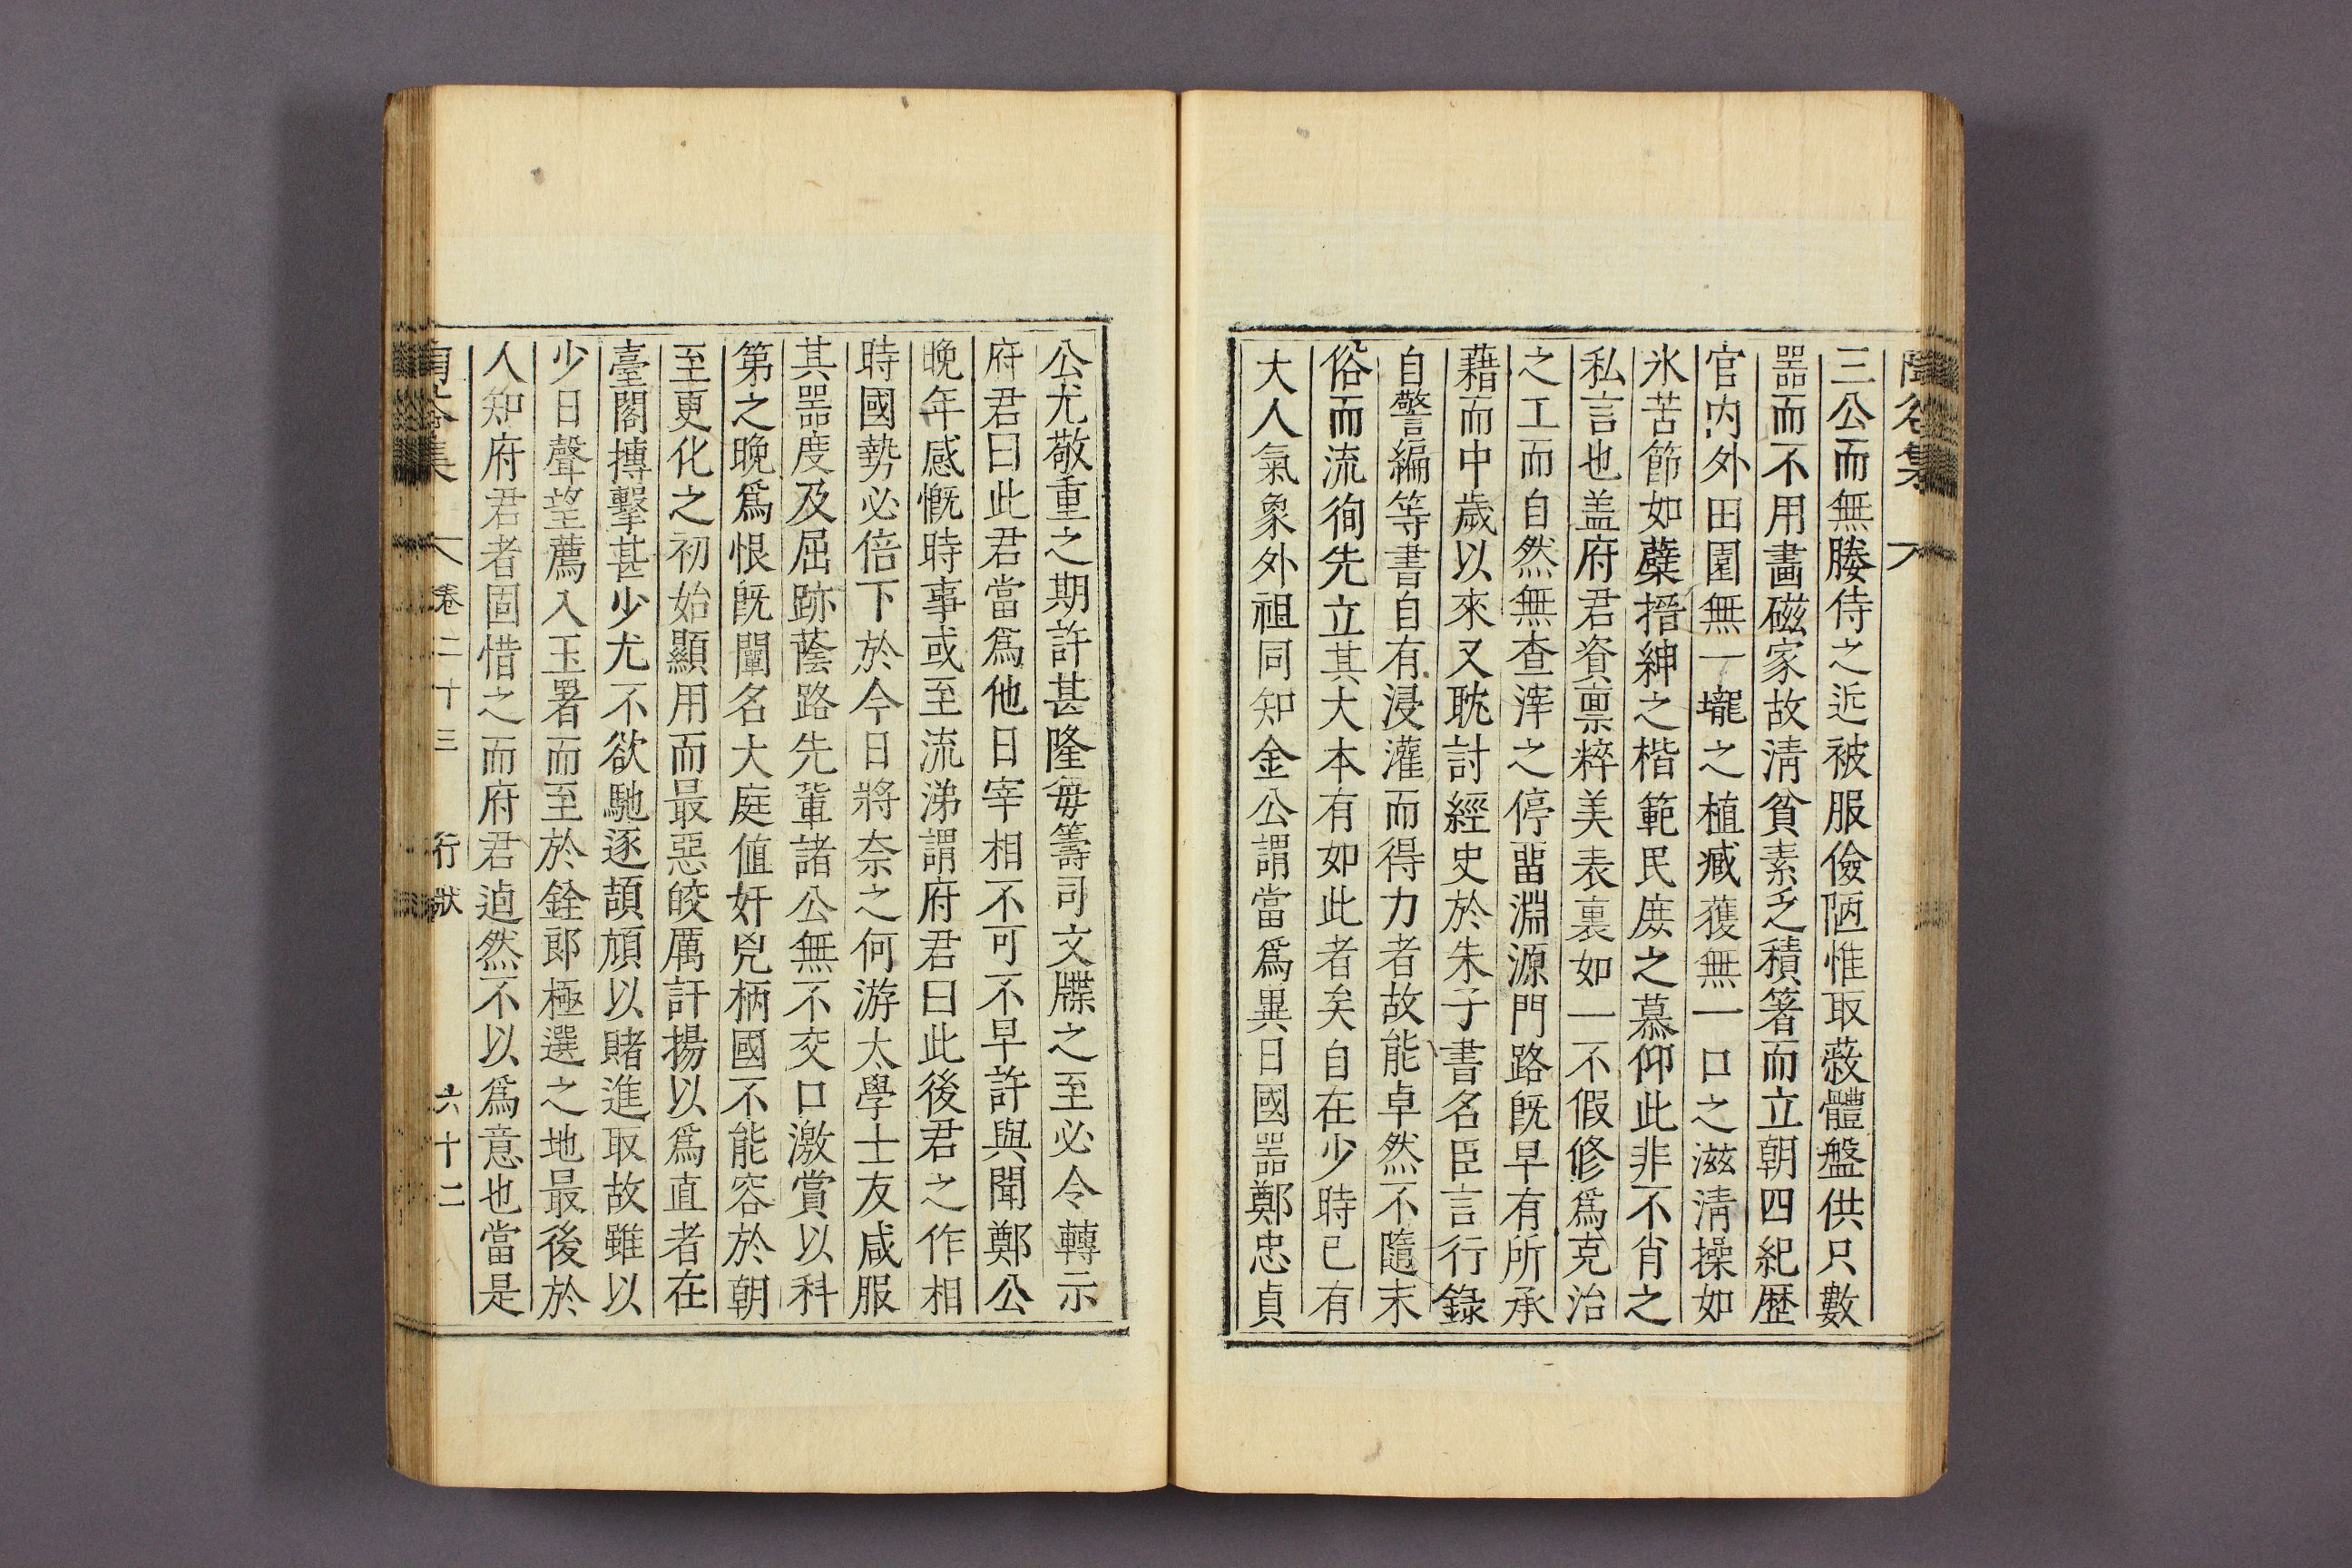 三公而無媵侍之近被服儉陋惟取蔽體盤供只數
器而不用畵磁家故清貧素乏積箸而立朝四紀歷
官内外田園無一壠之植臧獲無一口之滋清操如
氷苦節如蘗搢紳之楷範民庶之慕仰此非不肖之
私言也盖府君資禀粹美表裏如一不假修爲克治
之工而自然無查滓之停畱淵源門路旣早有所承
藉而中歲以來又耽討經史於朱子書名臣言行錄
自警編等書自有浸灌而得力者故能卓然不隨末
俗而流徇先立其大本有如此者矣自在少時已有
大人氣象外祖同知金公謂當爲異日國器鄭忠貞
公尤敬重之期許甚隆每籌司文牒之至必令轉示
府君曰此君當爲他日宰相不可不早許與聞鄭公
晩年感慨時事或至流涕謂府君曰此後君之作相
時國勢必倍下於今日將奈之何游太學士友咸服
其器度及屈跡蔭路先輩諸公無不交口激賞以科
第之晩爲恨旣闡名大庭値奸兇柄國不能容於朝
至更化之初始顯用而最惡皎厲訐揚以爲直者在
臺閣搏擊甚少尤不欲馳逐頡頏以賭進取故雖以
少日聲望薦入玉署而至於銓郎極選之地最後於
人知府君者固惜之而府君逌然不以爲意也當是
卷二十三 行狀 六十二